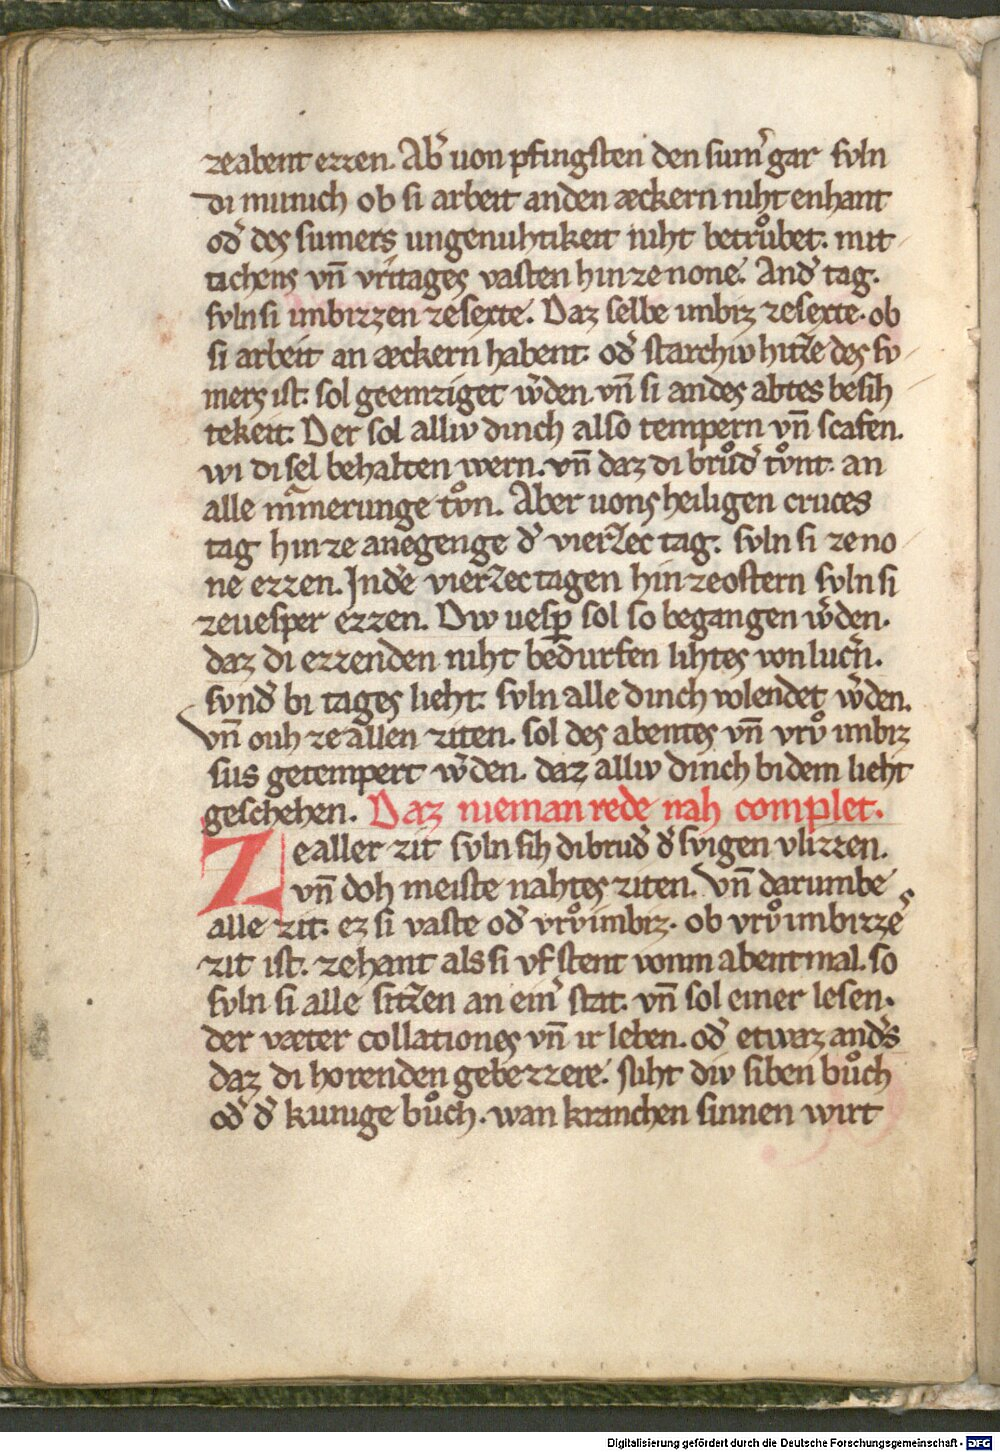 zeabent ezzen. Ab̕ uon pfingsten den sum̕ gar svln
di munich ob si arbeit anden æckern niht enhant
od̕ des sumers ungenuhtikeit niht betruͦbet. mit
tichens vn̄ vritages vasten hinze none. And̕ tag.
svln si imbizzen zesexte. Daz selbe imbiz zesexte. ob
si arbeit an æckern habent. od̕ starchiv hitze des sv
mers ist. sol geemziget w̕den. vn̄ si andes abtes besih
tekeit. Der sol alliv dinch also tempern vn̄ scafen.
wi di sel behalten wern. vn̄ daz di bruͦd̕ tuͦnt. an
alle murmerunge tuͦn. Aber uons heiligen cruces
tag hinze anegenge d̕ vierzec tag. svln si ze no
ne ezzen. Ind̕e vierzec tagen hinzeostern svln si
zeuesper ezzen. Div uesp̱ sol so begangen w̕den.
daz di ezzenden niht bedurfen lihtes von luc̕n.
svnd̕ bi tages lieht. svln alle dinch volendet w̕den.
vn̄ ouh ze allen ziten. sol des abentes vn̄ vruͦ imbiz
sus getempert w̕den. daz alliv dinch bidem lieht
geschehen. Daz nieman rede nah complet.
Zealler zit svln sih di brud̕ d̕ svigen vlizzen.
vn̄ doh meiste nahtes ziten. Vn̄ darumbe
alle zit. ez si vaste od̕ vruͦimbiz. ob vruͦimbizze̅s
zit ist. zehant als si vf stent vonm abentmal. so
svln si alle sitzen an ein̕ stat. vn̄ sol einer lesen.
der væter collationes vn̄ ir leben. od̕ etwaz and̕s
daz di horenden gebezzere. Niht div siben buͦch
od̕ d̕ kunige buͦch. wan kranchen sinnen wirt
Digitalisierung gefördert durch die Deutsche Forschungsgemeinschaft - DFG